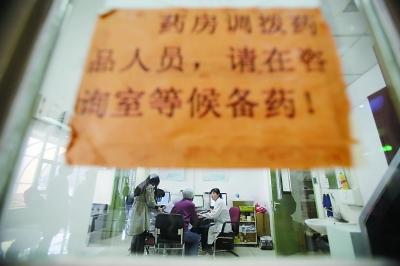 药房调拨药
品人员，请在咨
询室等候备药！